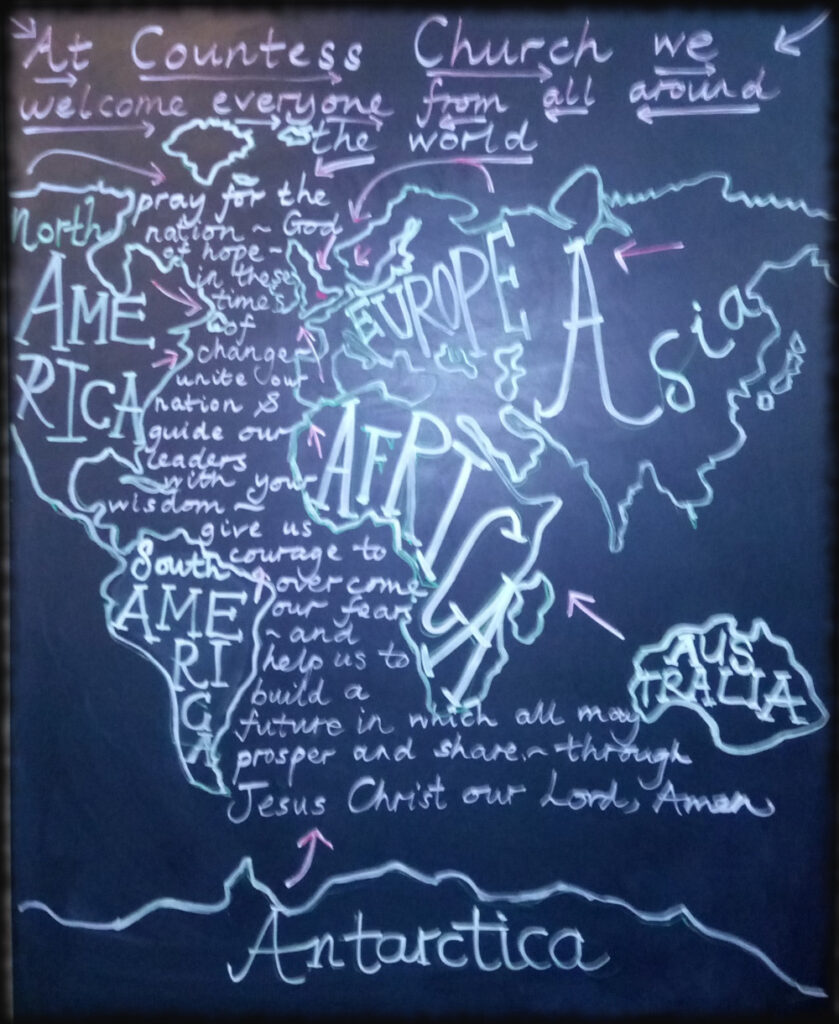 At Countess Church we
welcome everyone from all around
the world
pray for the
nation ~ God
of hope -
in these
times
of
change
unite our
nation &
guide our
leaders
with your
wisdom ~
give us
courage to
overcome
our fear
~ and
help us to
build a
future in which all may
prosper and share ~ through
Jesus Christ our Lord, Amen
North
AME
RICA
South
AME
RI
C
A
EUROPE
Asia
AFRICA
AUS
TRALIA
Antarctica